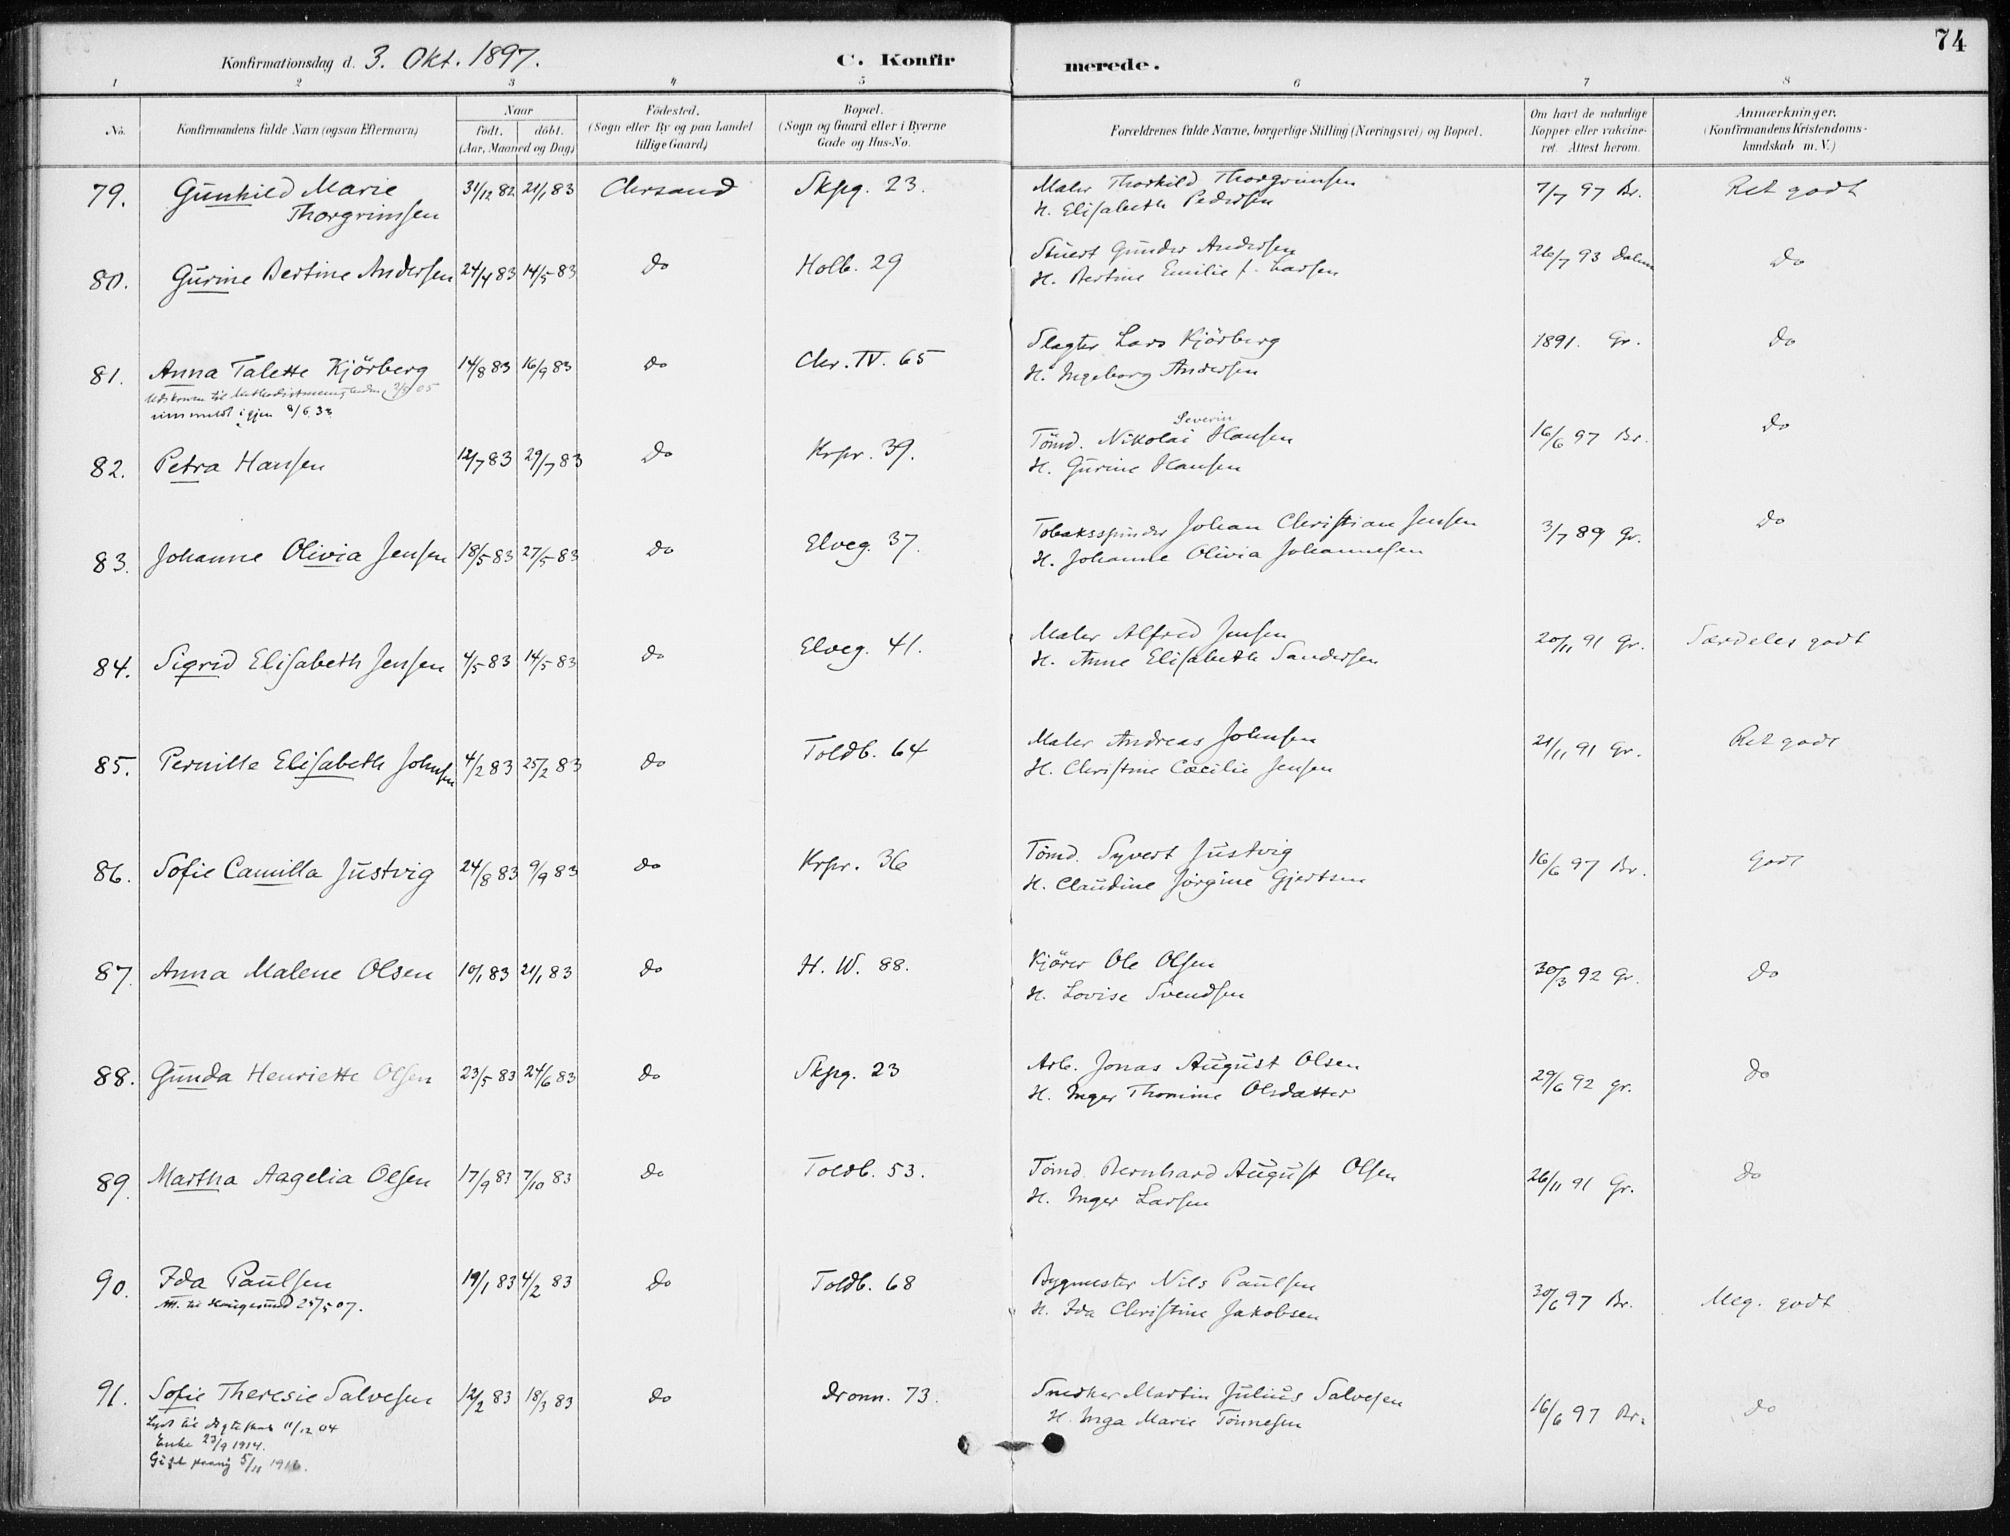 74
Konfirmationsdag d. 3. Okt. 1897. C. Konfir merede.
1 2 3 4 5 6 7 8
No. Konfirmandens fulde Navn (ogsaa Efternavn) Naar Födested. Bopæl. Forældrenes fulde Navne, borgerlige Stilling (Næringsvei) og Bopæl. Om havt de naturlige Anmærkninger.
födt. döbt. (Sogn eller By og paa Landet (Sogn og Gaard eller i Byerne Kopper eller vakcine- (Konfirmandens Kristendoms-
(Aar, Maaned og Dag) tillige Gaard) Gade og Hus-No. ret. Attest herom. kundskab m. V.)
79. Gunhild Marie 31/12 82 21/1 83 Chrsand Skpg. 23. Maler Thorkild Thorgrimsen 7/7 97 Br. Ret godt
Thorgrimsen H. Elisabeth Pedersen
80. Gurine Bertine Andersen 24/4 83 14/5 83 do Holb. 29 Stuert Gunder Andersen 26/7 93 Dalum do
H. Bertine Emilie f. Larsen
81. Anna Talette Kjörberg 14/8 83 16/9 83 do Chr. IV. 65 Slagter Lars Kjörberg 1891. Gr. do
Udskreven til Methodistmenigheden 3/8 05 H. Ingeborg Andersen
indmeldt igjen 8/6 33
82. Petra Hansen 12/7 83 29/7 83 do Krpr. 39. Tömd. Nikolai Severin Hansen 16/6 97 Br. do
H. Gurine Hansen
83. Johanne Olivia Jensen 18/5 83 27/5 83 do Elveg. 37. Tobaksspinder Johan Christian Jensen 3/7 89 Gr. do
H. Johanne Olivia Johannesen
84. Sigrid Elisabeth Jensen 4/5 83 14/5 83 do Elveg. 41. Maler Alfred Jensen 20/11 91 Gr. Særdeles godt
H. Anne Elisabeth Sandersen
85. Pernille Elisabeth Johnsen 4/2 83 25/2 83 do Toldb. 64 Maler Andreas Johnsen 21/11 91 Gr. Ret godt
H. Christine Cæcilie Jensen
86. Sofie Camilla Justvig 24/8 83 9/9 83 do Krpr. 36 Tömd. Syvert Justvig 16/6 97 Br. Godt
H. Claudine Jörgine Gjertsen
87. Anna Malene Olsen 10/1 83 21/1 83 do H. W. 88. Kjörer Ole Olsen 30/3 92 Gr. do
H. Lovise Svendsen
88. Gunda Henriette Olsen 23/5 83 24/6 83 do Skpg. 23 Arb. Jonas August Olsen 29/6 92 Gr. do
H. Inger Thomine Olsdatter
89. Martha Aagelia Olsen 17/9 83 7/10 83 do Toldb. 53. Tömd. Bernhard August Olsen 26/11 91 Gr. do
H. Inger Larsen
90. Ida Paulsen 19/1 83 4/2 83 do Toldb. 68 Bygmester Nils Paulsen 30/6 97 Br. Meg. godt
Att. til Haugesund 25/5 07. H. Ida Christine Jakobsen
91. Sofie Theresie Salvesen 12/2 83 18/3 83 do Dronn. 73. Snedker Martin Julius Salvesen 16/6 97 Br. do
Lyst til Ægteskab 11/12 04 H. Inga Marie Tönnesen
Enke 23/9 1914.
Gift paany 5/11 1916.